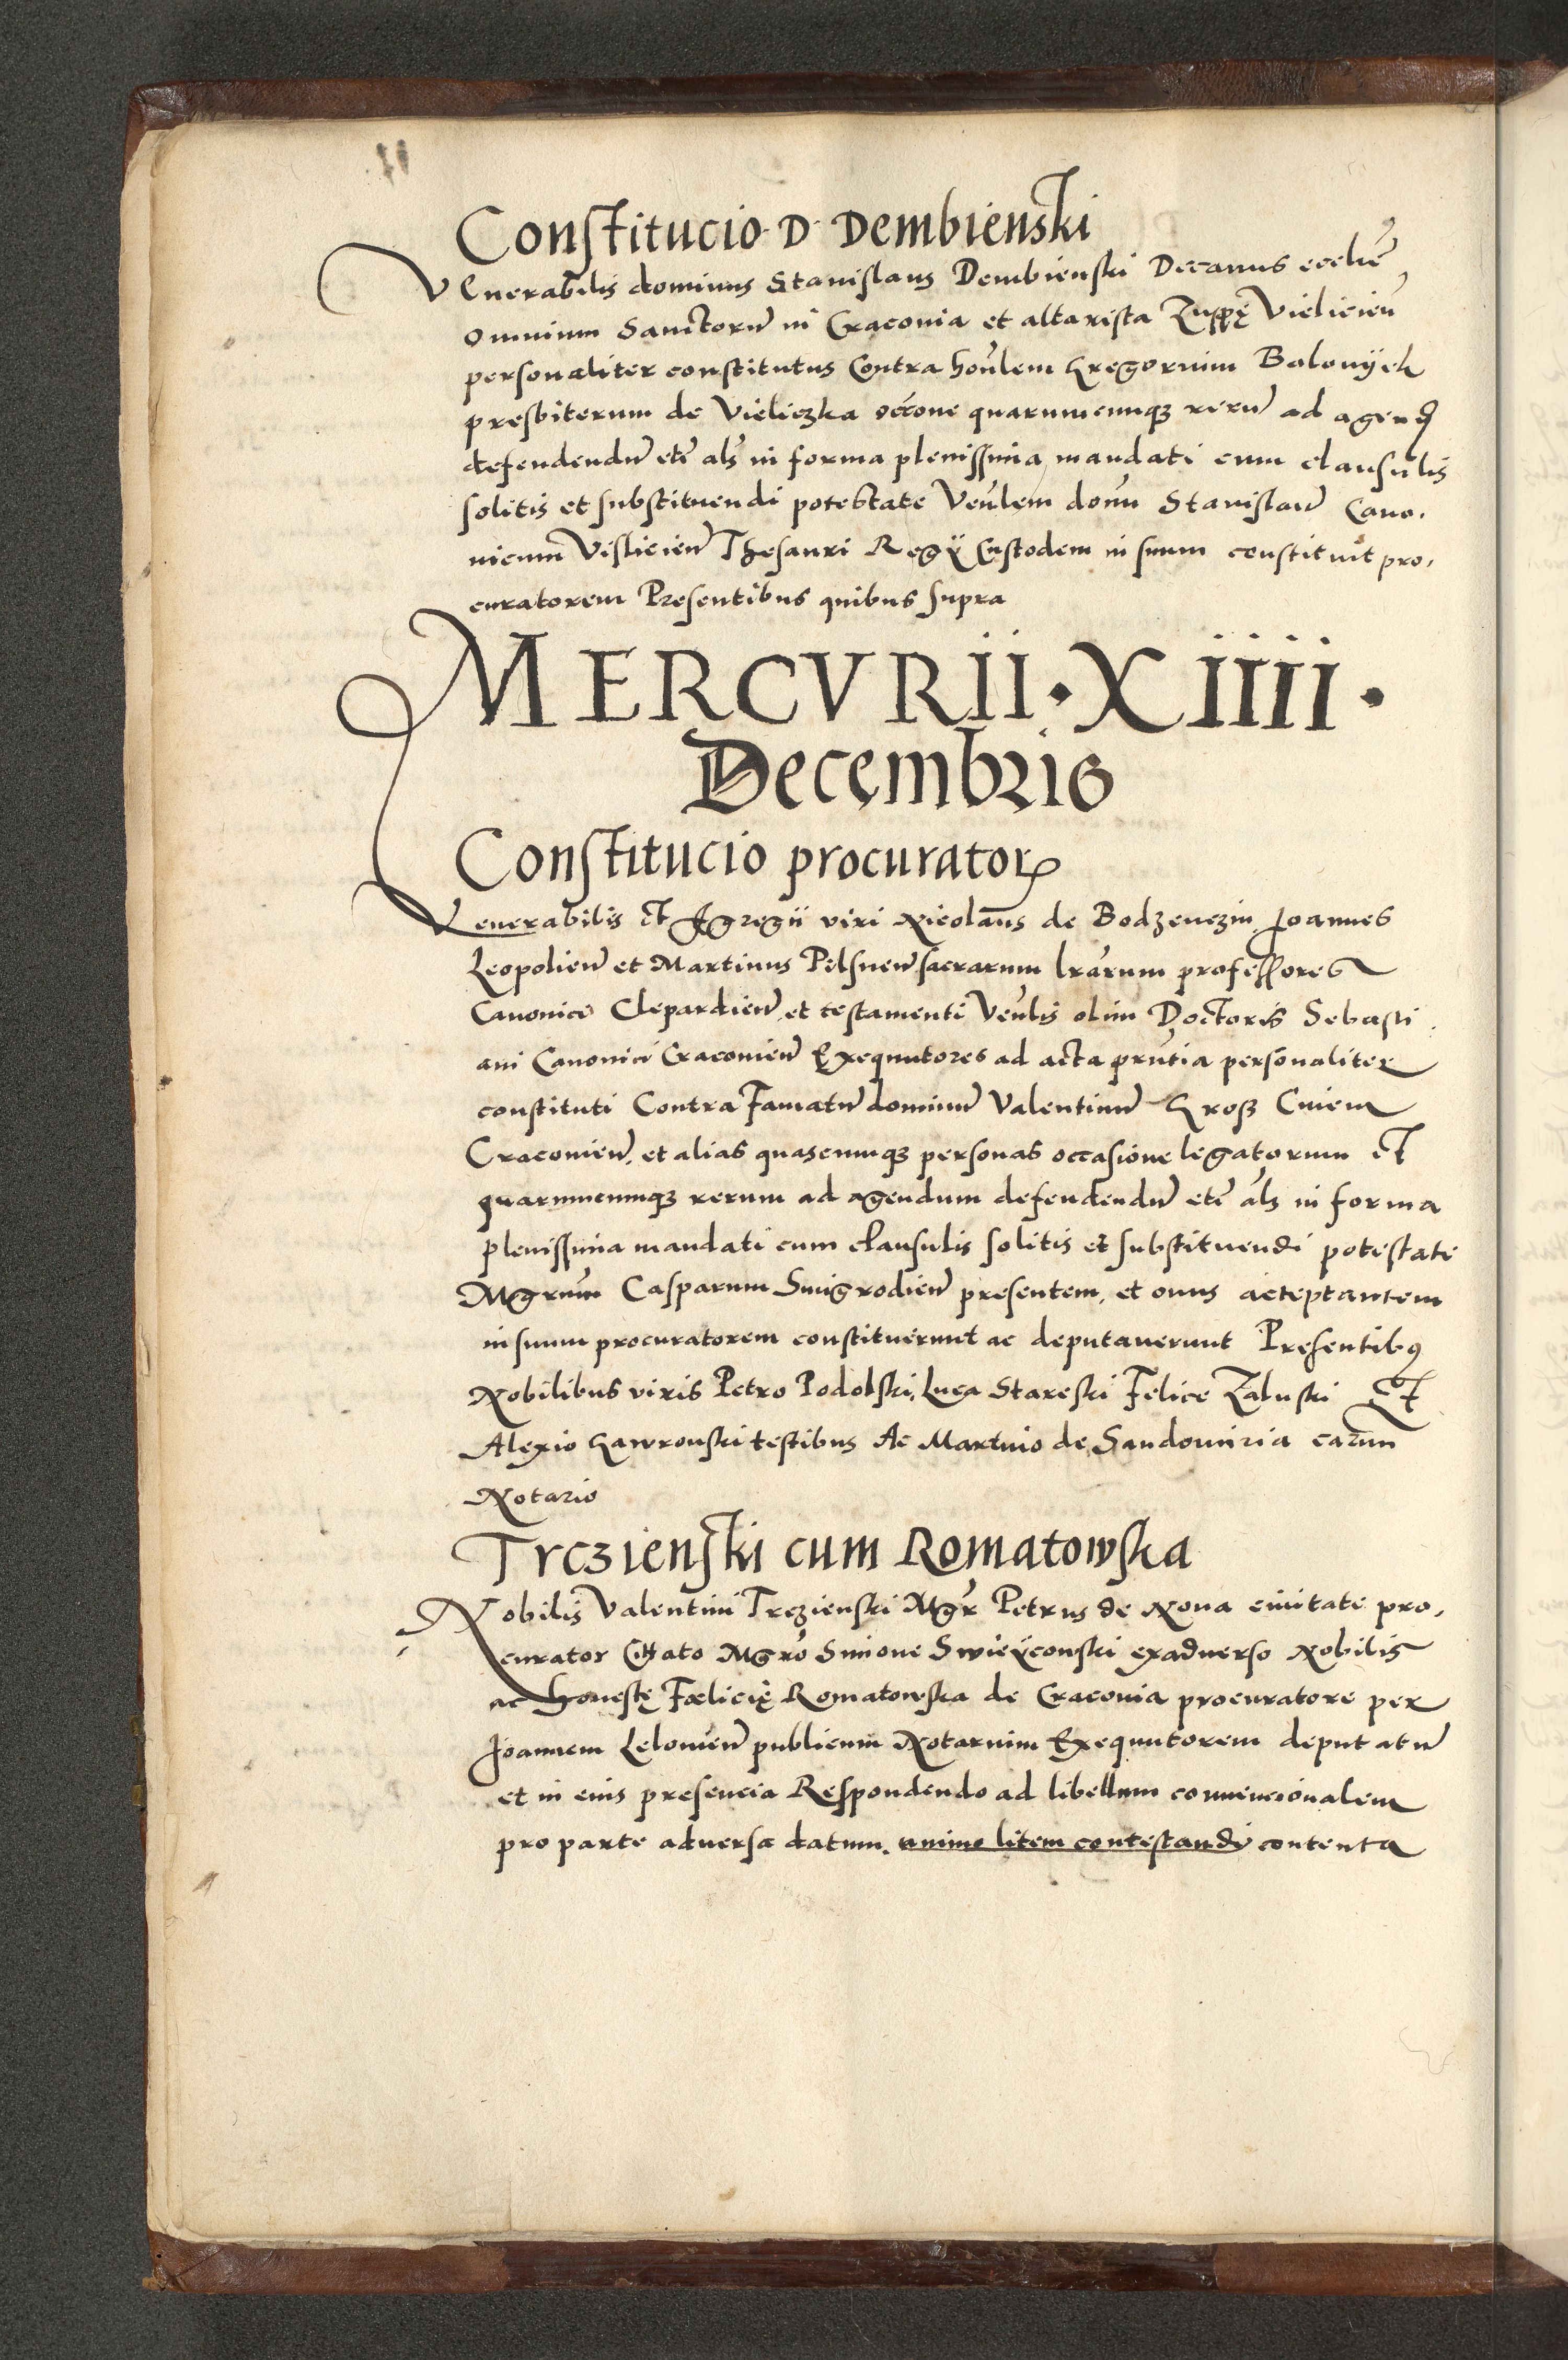 Constitucio D. Dembienski
Venerabilis dominus Stanislaus Dembienski Decanus ecclie
Omnium Sanctoru in Cracovia et altarista Zuppę Vieliciен
personaliter constitutus Contra honlem Gregorium Bolonÿek
presbiterum de Vieliczka occone quarumcunqз reru ad agend
defendendu etc als in forma plenissima mandati cum clausulis
solitis et substituendi potestate Venlem domn Stanislau Cano,
nicum Vislicien Thesauri Regÿ Custodem in suum constituit pro,
curatorem Presentibus quibus supra
MERCVRII · XIIII ·
Decembris
Constitucio procurator
Venerabilis et Egregii viri Nicolaus de Bodzenczin Joannes
Leopolien et Martinus Pilsnen sacrarum lrarum professores
Canonici Clepardien et testamenti Venlis olim Doctoris Sebasti
ani Canonici Cracovien Exequutores ad acta prntia personaliter
constituti Contra Famatu dominu Valentinu Gros Civem
Cracovien. et alias quascunqз personas occasione legatorum et
quarumcunqз rerum ad agendum defendendu etc als in forma
plenissima mandati cum clausulis solitis et substituendi potestate
Mgrum Casparum Smigrodien presentem, et onus acceptantem
in suum procuratorem constituerunt ac deputaverunt Presentibꝰ
Nobilibus viris Petro Podolski, Luca Stareski Felice Zaluski Et
Alexio Gawronski testibus Ac Martino de Sandomiria earum
Notario
Trczienski cum Romatowska
Nobilis Valentini Trczienski Mgr Petrus de Nova civitate pro,
curator Citato Mgro Simone Swieÿconski exadverso Nobilis
ac Honestę Fœlicię Romatowska de Cracovia procuratore per
Joannem Lelovien publicum Notarium Exequutorem deputatu
et in eius presencia Respondendo ad libellum convencionalem
pro parte adversa datum. animo litem contestandi contenta